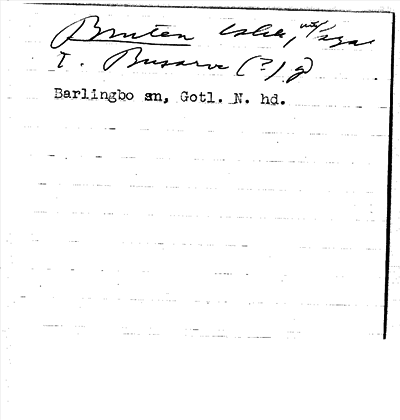 Bruten åker, utf/äga
t. Busarve (?) g
Barlingbo sn, Gotl. N. hd.